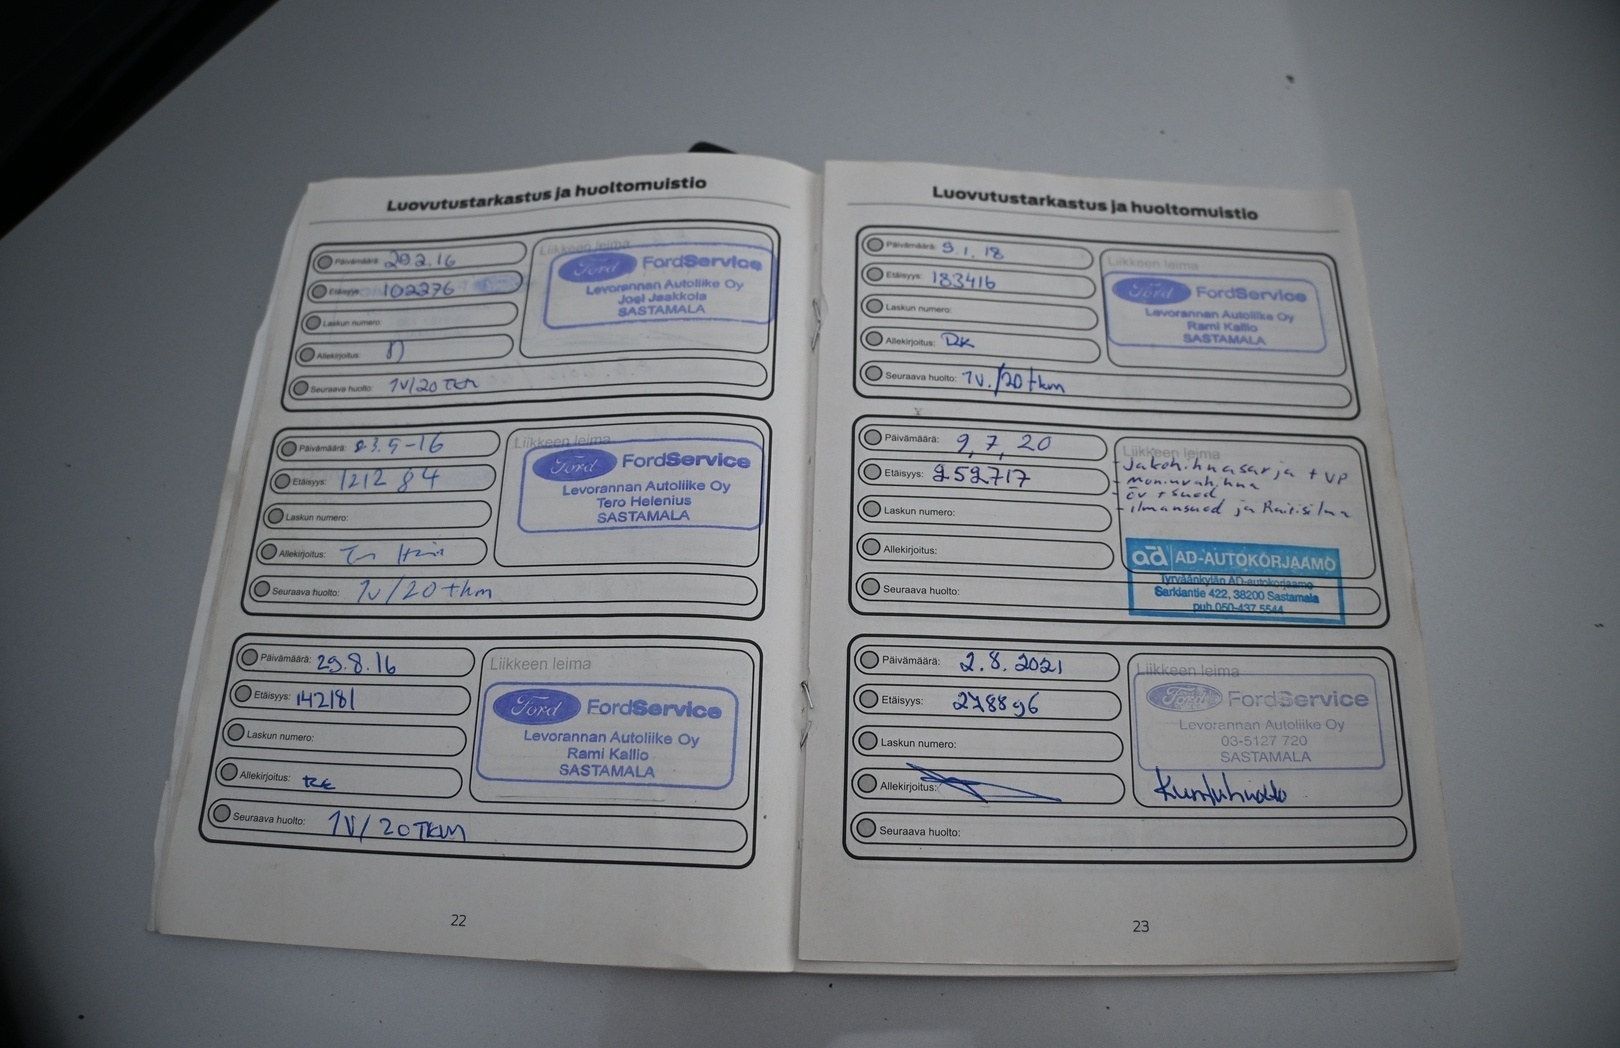 Luovutustarkastus ja huoltomuistio
Päivämäärä: 29 2.16
Etäisyys: 102276
Laskun numero:
Allekirjoitus:
Seuraava huolto: 1V/20 TKM
Liikkeen leima
Ford FordService
Levorannan Autoliike Oy
Joel Jaakkola
SASTAMALA
Päivämäärä: 23.5-16
Etäisyys: 121284
Laskun numero:
Allekirjoitus:
Seuraava huolto: 1v/20 tkm
Liikkeen leima
Ford FordService
Levorannan Autoliike Oy
Tero Helenius
SASTAMALA
Päivämäärä: 29.8.16
Etäisyys: 142181
Laskun numero:
Allekirjoitus: RK
Seuraava huolto: 1V/20 TKM
Liikkeen leima
Ford FordService
Levorannan Autoliike Oy
Rami Kallio
SASTAMALA
22
Luovutustarkastus ja huoltomuistio
Päivämäärä: 9.1.18
Etäisyys: 183416
Laskun numero:
Allekirjoitus: RK
Seuraava huolto: 1V./20 tkm
Liikkeen leima
Ford FordService
Levorannan Autoliike Oy
Rami Kallio
SASTAMALA
Päivämäärä: 9,7,20
Etäisyys: 252717
Laskun numero:
Allekirjoitus:
Seuraava huolto:
Liikkeen leima
- Jakohihnasarja + VP
- moniurahihna
- öv + suod
- ilmansuod ja Raitisilma
ad AD-AUTOKORJAAMO
Tyrväänkylän AD-autokorjaamo
Sarkiantie 422, 38200 Sastamala
puh 050-437 5544
Päivämäärä: 2.8.2021
Etäisyys: 278896
Laskun numero:
Allekirjoitus:
Seuraava huolto:
Liikkeen leima
Ford FordService
Levorannan Autoliike Oy
03-5127 720
SASTAMALA
Kuntohuolto
23